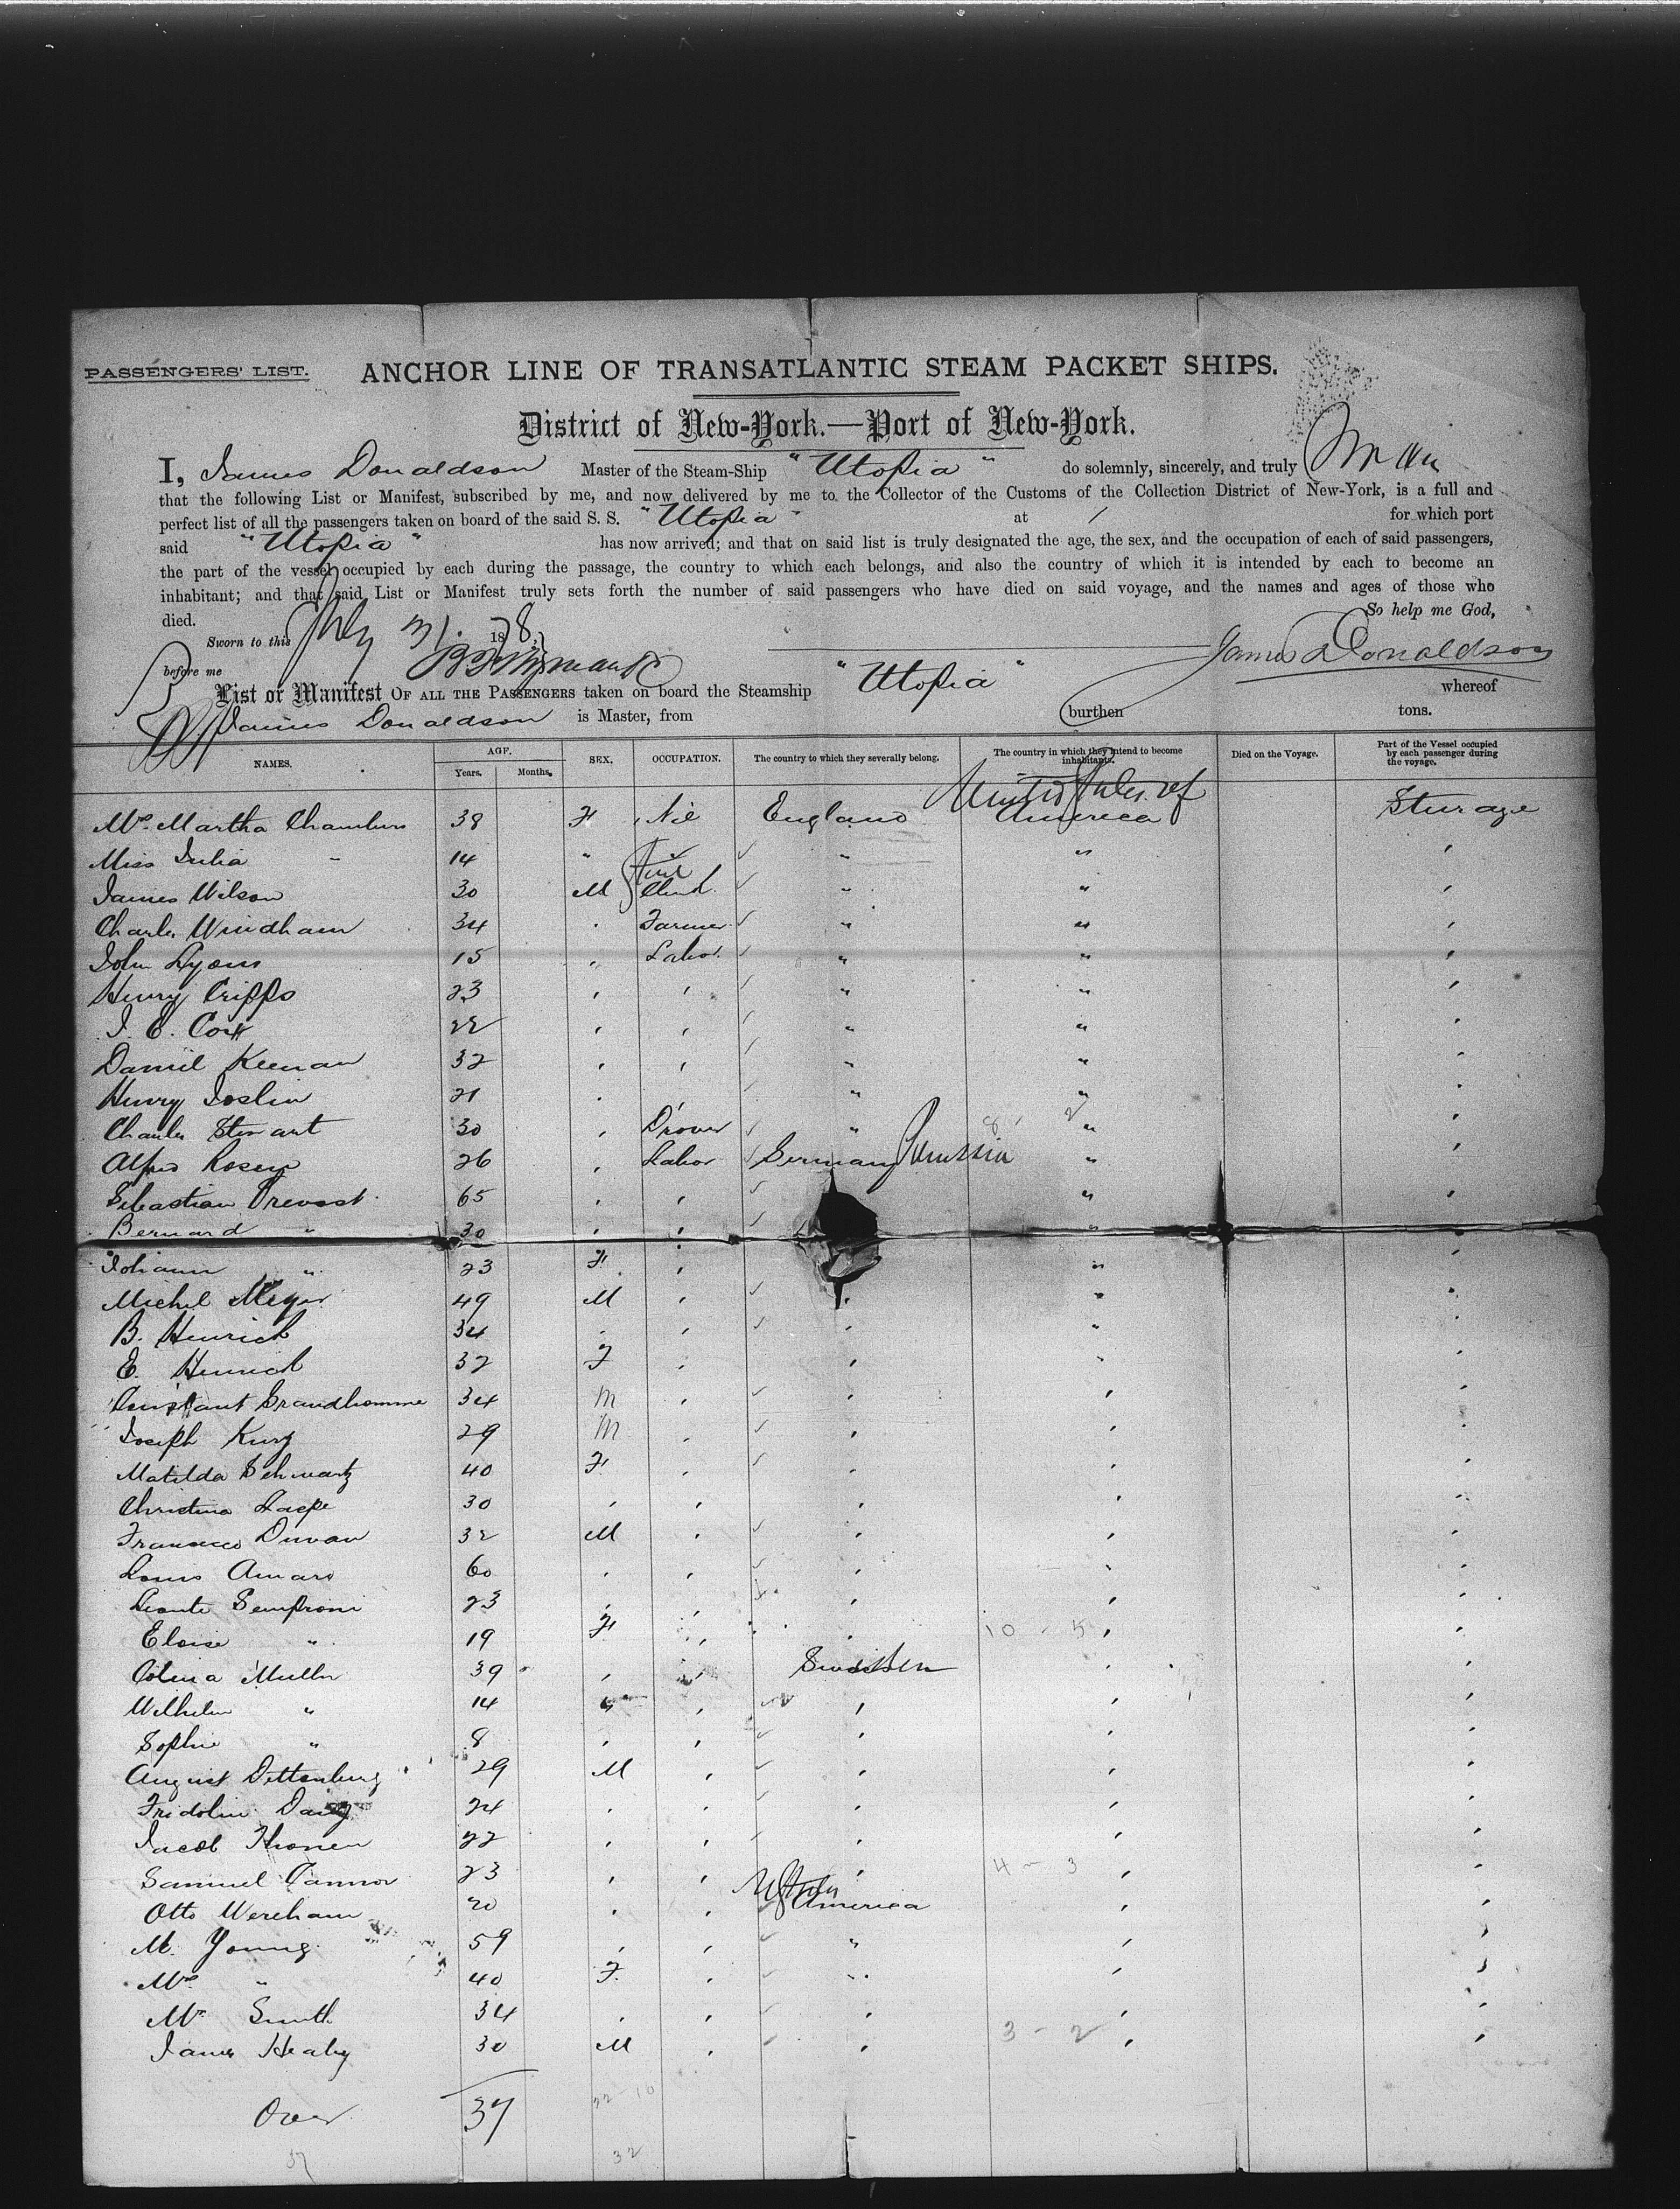 PASSENGERS' LIST. ANCHOR LINE OF TRANSATLANTIC STEAM PACKET SHIPS.
District of New-York.—Port of New-York.
I, James Donaldson Master of the Steam-Ship "Utopia" do solemnly, sincerely, and truly
that the following List or Manifest, subscribed by me, and now delivered by me to the Collector of the Customs of the Collection District of New-York, is a full and
perfect list of all the passengers taken on board of the said S. S. "Utopia" at for which port
said "Utopia" has now arrived; and that on said list is truly designated the age, the sex, and the occupation of each of said passengers,
the part of the vessel occupied by each during the passage, the country to which each belongs, and also the country of which it is intended by each to become an
inhabitant; and that said List or Manifest truly sets forth the number of said passengers who have died on said voyage, and the names and ages of those who
died. So help me God,
Sworn to this July 31. 1878, James Donaldson
before me
List or Manifest OF ALL THE PASSENGERS taken on board the Steamship "Utopia" whereof
James Donaldson is Master, from burthen tons.
NAMES. AGE. Years. Months. SEX. OCCUPATION. The country to which they severally belong. The country in which they intend to become inhabitants. Died on the Voyage. Part of the Vessel occupied by each passenger during the voyage.
Mrs. Martha Chambers 38 F Nil England United States of America Sturage
Miss Julia " 14 " " " "
James Wilson 30 M " "
Charles Windham 34 Farmer " "
John Lyons 15 Labor " "
Henry Cripps 23 " "
J. E. Cox 22 " "
Daniel Keenan 32 " "
Henry Joslin 21 " "
Charles Stewart 30 Drover " "
Alfred 26 Labor Germany Prussia "
Sebastian Prevost 65 "
Bernard " 30 "
Johann " 23 F "
Michel Meyer 49 M "
B. Henrich 34 "
E. Henrich 32 F
Constant Grandhomme 34 M
Joseph Kurz 29 M
Matilda Schwartz 40 F
Christina 30
Francisco 32 M
Louis Amaro 60
Semproni 23
Eloise " 19 F 10 - 5
Muller 39
Wilhelm " 14 "
Sophie " 8
August Dettenburg 29 M
Fridolin 24
Jacob 22
Samuel 23 4 - 3
Otto Wereham 20 U States America
M. Young 59 "
Mrs. " 40 F "
Mr Smith 34
James Healy 30 M 3 - 2
Over 37 22-10
37 32